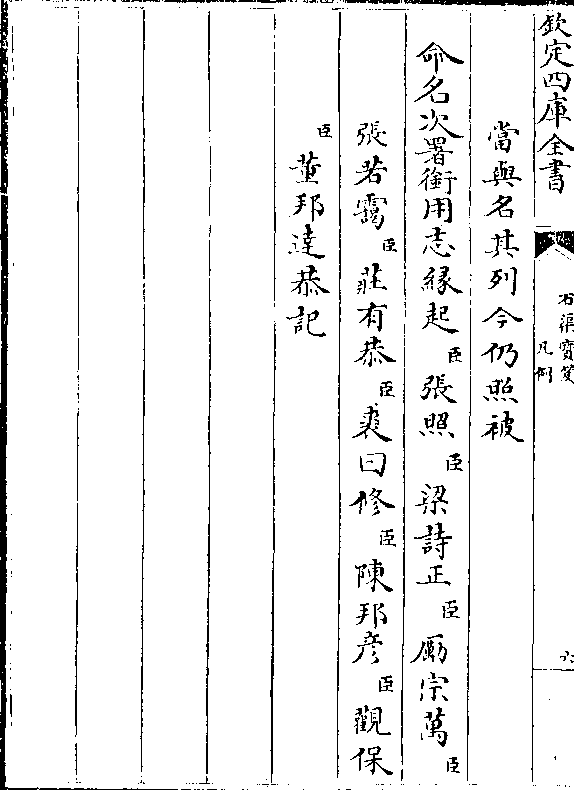 欽定四庫全書
石渠寶笈
凡例
六
當與名其列今仍照被
命名次署銜用志緣起臣張照臣梁詩正臣厲宗萬臣
張若靄臣莊有恭臣裘曰修臣陳邦彦臣觀保
臣董邦達恭記